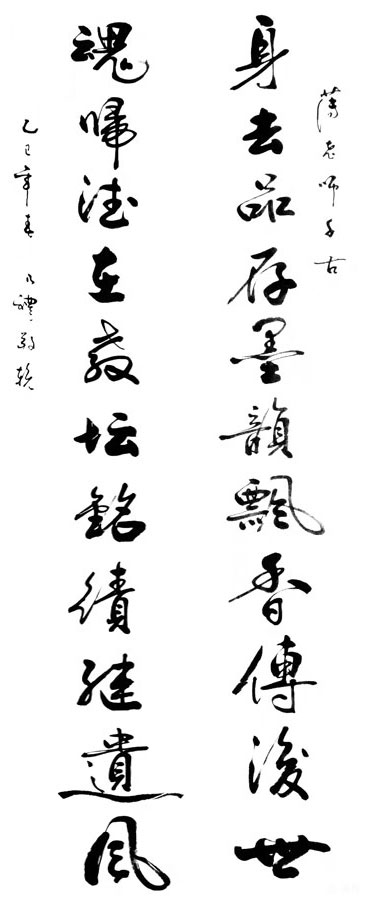 薄老師千古
身去品存墨韻飄香傳後世
魂歸德在教坛銘績继遺風
乙巳年春 乃禮敬輓